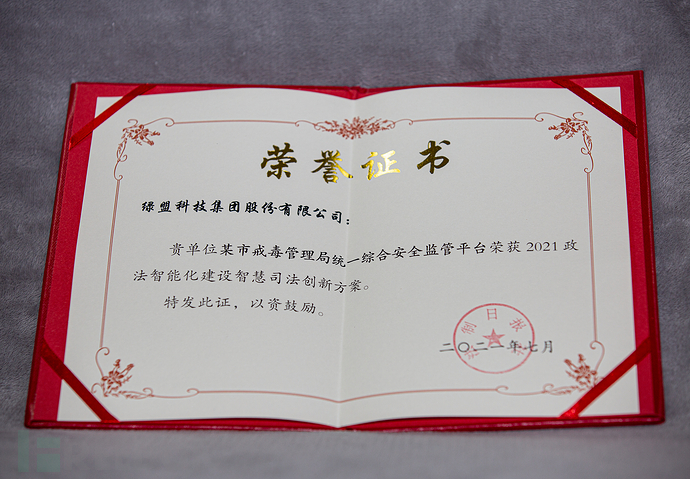 荣誉证书
绿盟科技集团股份有限公司：
贵单位某市戒毒管理局统一综合安全监管平台荣获2021政
法智能化建设智慧司法创新方案。
特发此证，以资鼓励。
法制日报社
二〇二一年七月